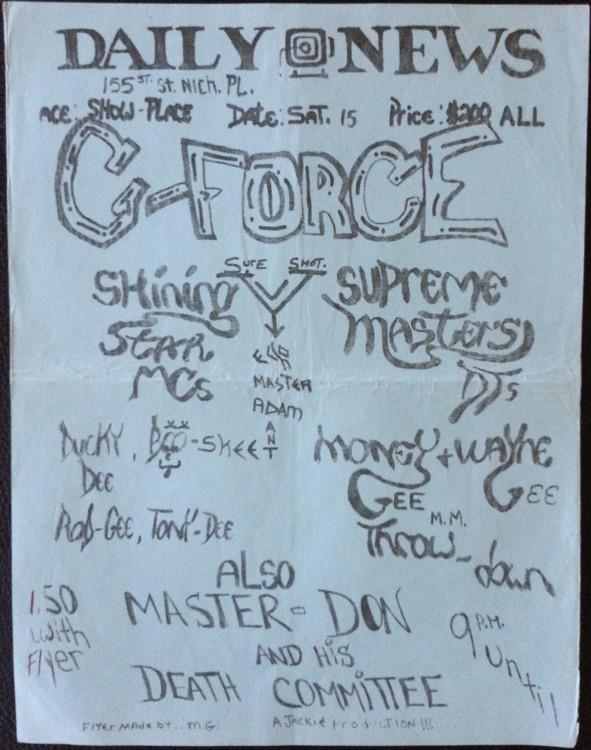 DAILY NEWS
155 ST. ST. NICH. PL.
ACE: SHOW-PLACE Date: SAT. 15 Price: $2.00 ALL
G-FORCE
SURE SHOT.
SHining
STAR
MCs
SUPREME
MASTERS
DJs
FOR
MASTER
ADAM
ANT
DUCKY DEE, BOO-SKEET
ROB-GEE, TONY-DEE
MONEY + WAYNE
GEE GEE
M.M.
THROW-down
ALSO
MASTER-DON
AND HiS
DEATH COMMITTEE
1.50
with
Flyer
9 P.M.
Until
FLYER MADE BY.. M.G. A JACKIE PRODUCTION!!!